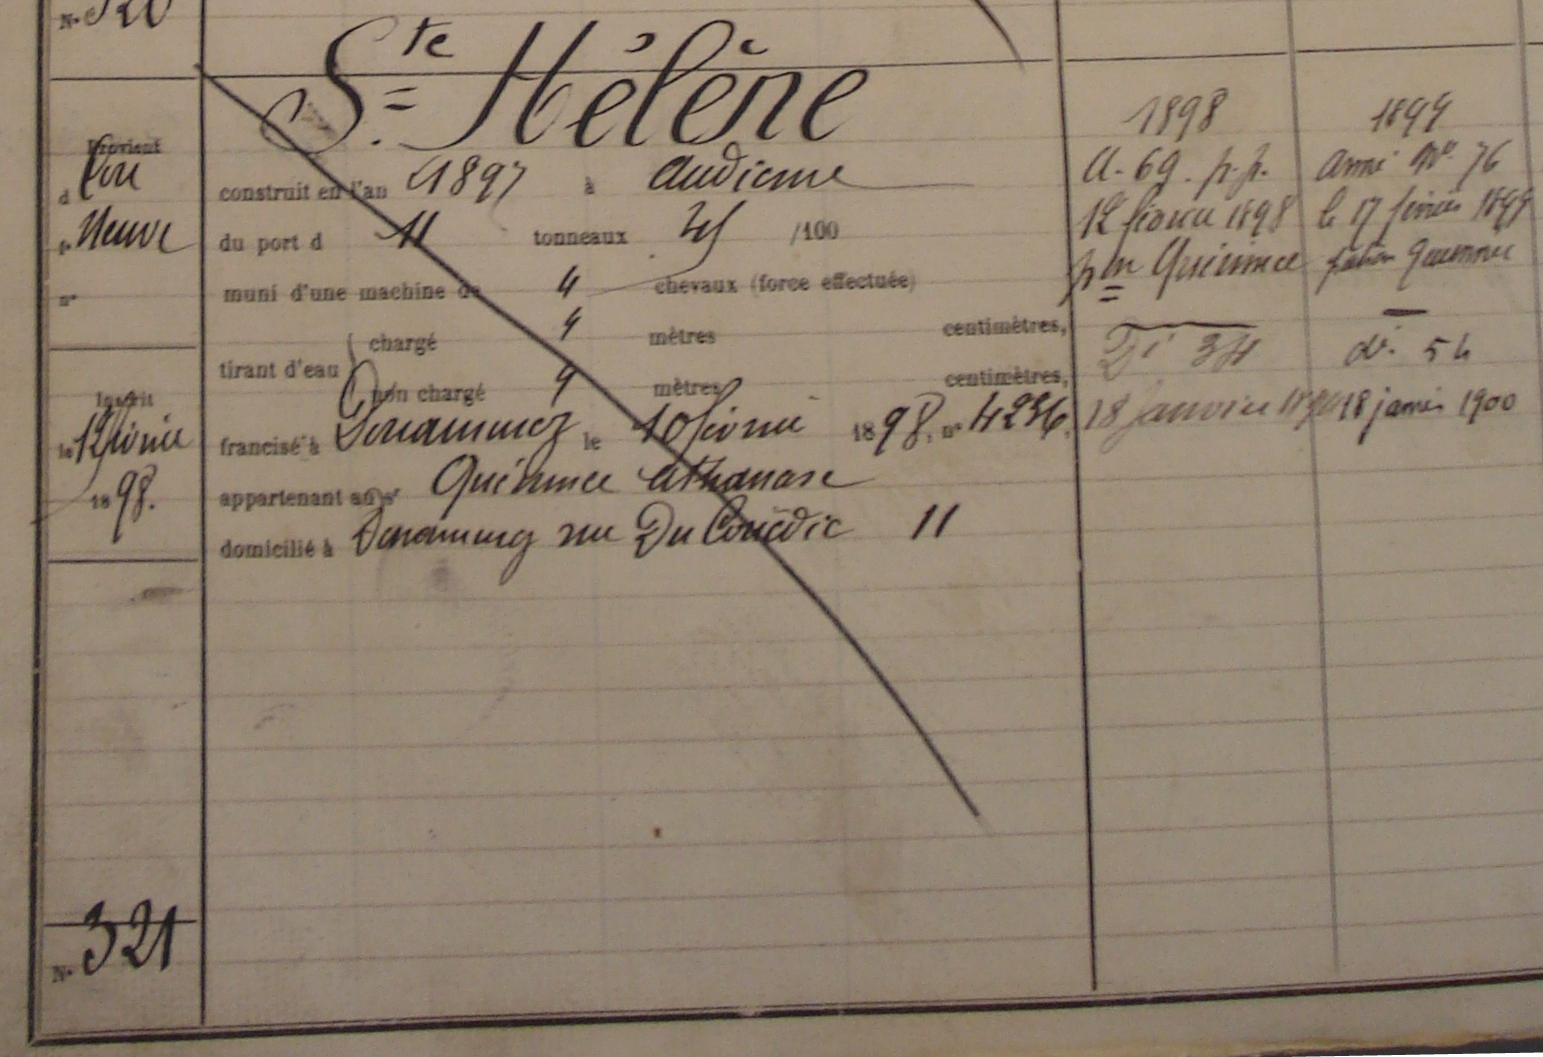 N° 320
Ste Hélène
Provient
d
p. Neuve
n°
construit en l'an 1897 à Audierne
du port d 11 tonneaux /100
muni d'une machine de 4 chevaux (force effectuée)
tirant d'eau
chargé 4 mètres centimètres,
non chargé 4 mètres centimètres,
francisé à Douarnenez le 10 février 1898, n° 4236,
appartenant au sr Quéinnec Athanase
domicilié à Douarnenez rue Du Couëdic 11
Inscrit
le 12 février
1898.
1898
A. 69. p.p.
12 février 1898
pon Quéinnec
Dt 34
18 janvier
1899
Armé No. 76
le 17 février 1899
patron Quéinnec
dt. 54
18 janvier 1900
N° 321